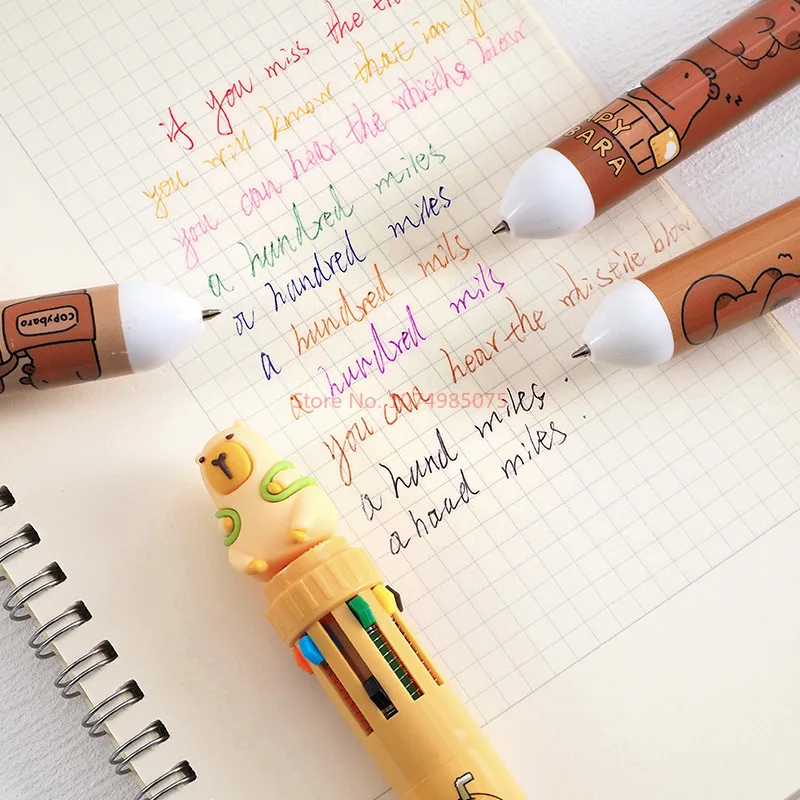 if you miss the tra
you will know that iam g
you can hear the whisths blow
a hundred miles
a handred miles
a hundred mils
a hundred mils
you can hear the whistile blow
a hund miles.
a haad miles.
COPYbaro
PY
BARA
zz
Store No. 1104985075